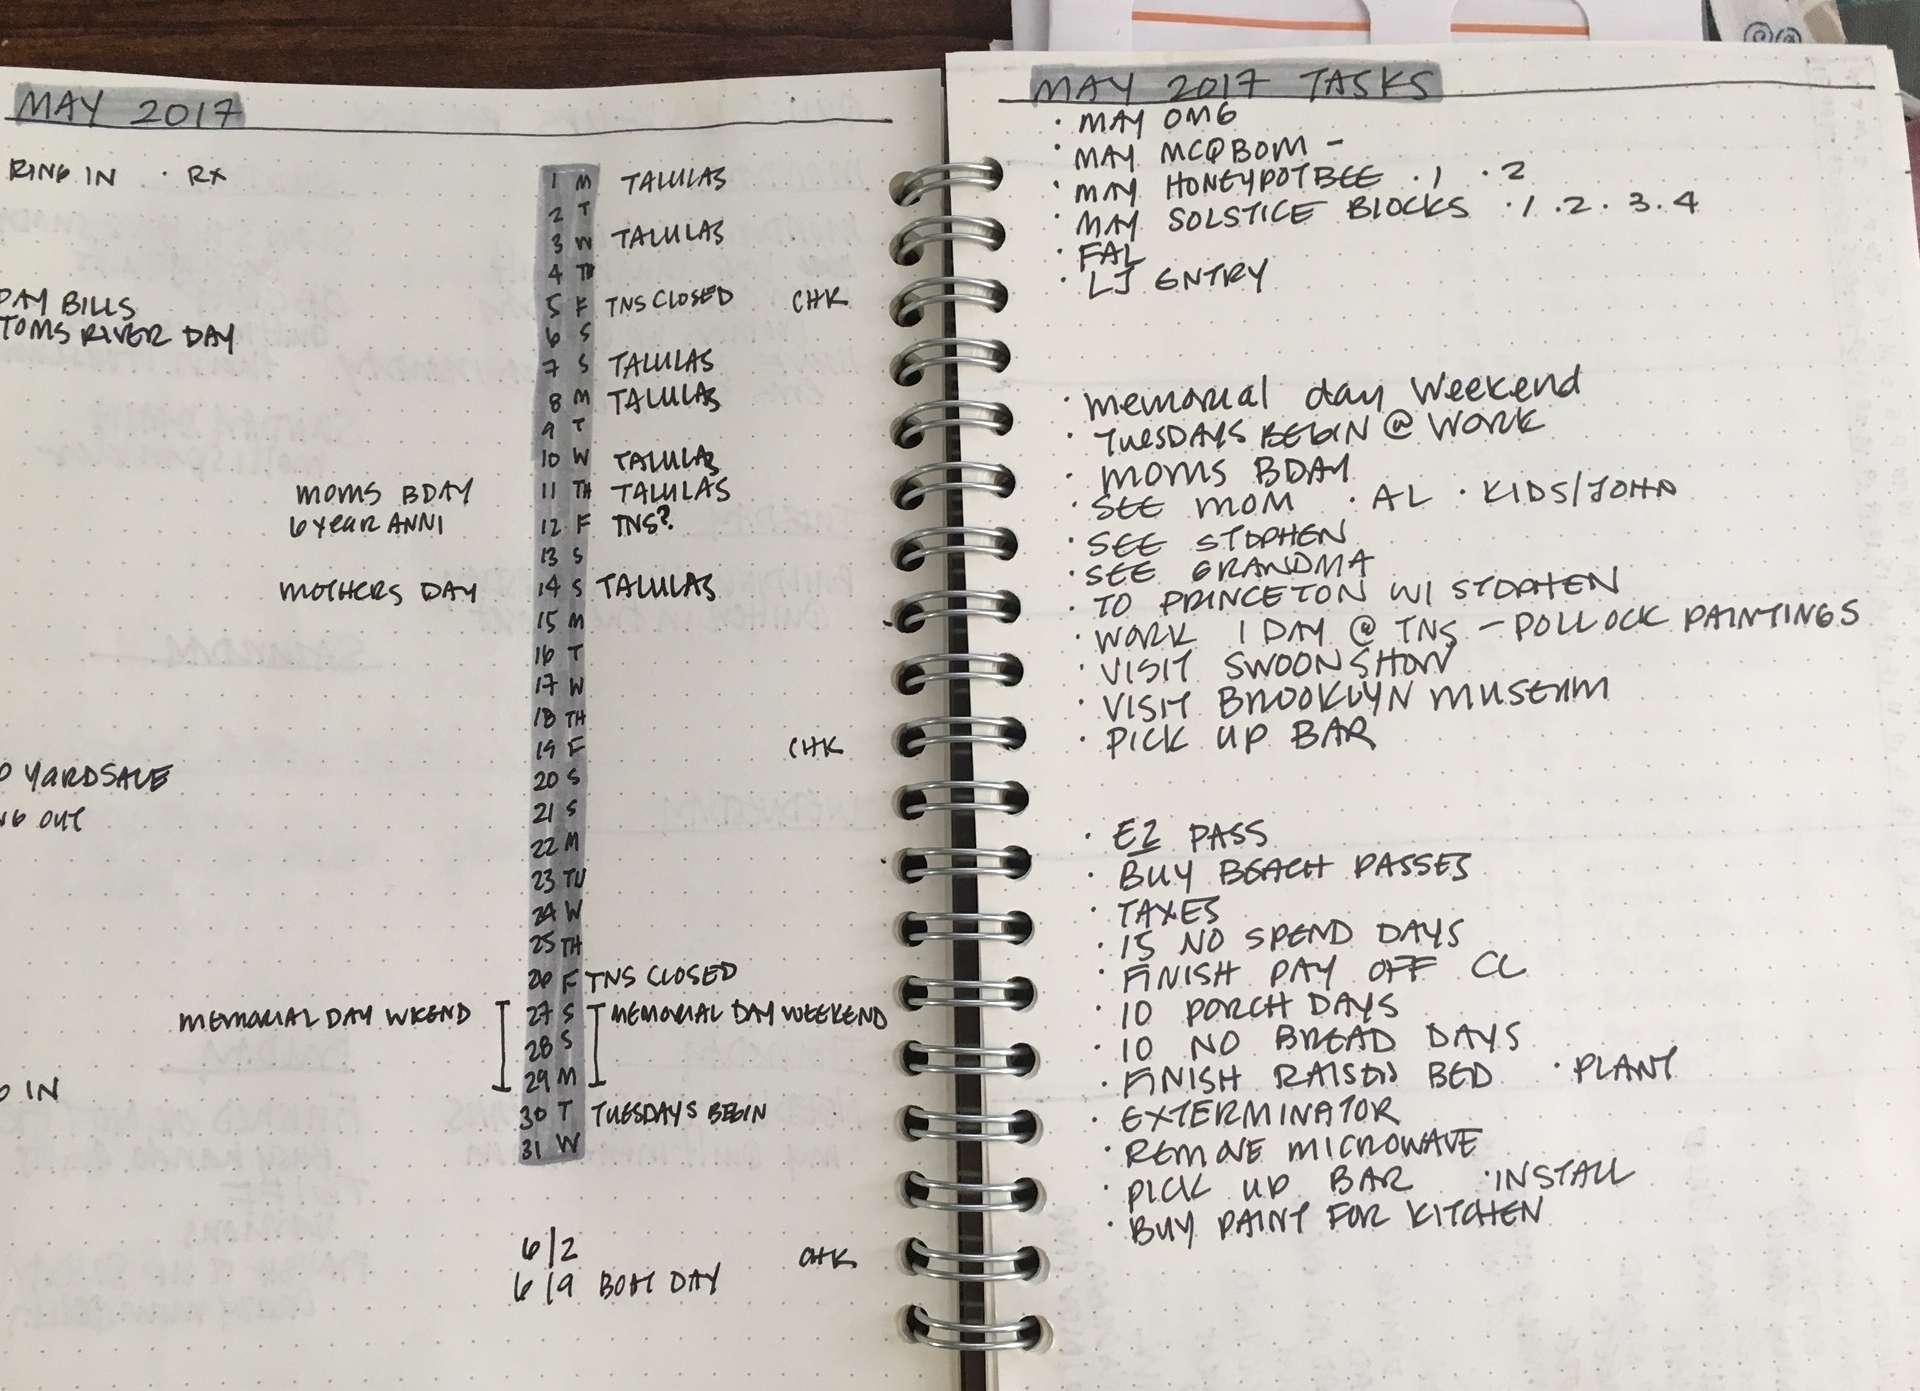 MAY 2017
RING IN · RX
1 M TALULAS
2 T
3 W TALULAS
4 TH
5 F TNS CLOSED CHK
PAY BILLS
6 S
TOMS RIVER DAY
7 S TALULAS
8 M TALULAS
9 T
10 W TALULAS
MOMS BDAY 11 TH TALULAS
6 YEAR ANNI 12 F TNS?
13 S
MOTHERS DAY 14 S TALULAS
15 M
16 T
17 W
18 TH
19 F CHK
YARDSALE 20 S
21 S
OUT
22 M
23 TU
24 W
25 TH
26 F TNS CLOSED
MEMORIAL DAY WKEND 27 S MEMORIAL DAY WEEKEND
28 S
29 M
IN
30 T TUESDAYS BEGIN
31 W
6/2 CHK
6/9 BOAT DAY
MAY 2017 TASKS
· MAY OMG
· MAY MCQBOM -
· MAY HONEYPOTBEE · 1 · 2
· MAY SOLSTICE BLOCKS · 1 . 2 . 3 . 4
· FAL
· LJ ENTRY
· MEMORIAL DAY WEEKEND
· TUESDAYS BEGIN @ WORK
· MOMS BDAY
· SEE MOM · AL · KIDS/JOHN
· SEE STEPHEN
· SEE GRANDMA
· TO PRINCETON W/ STEPHEN
· WORK 1 DAY @ TNS - POLLOCK PAINTINGS
· VISIT SWOON SHOW
· VISIT BROOKLYN MUSEUM
· PICK UP BAR
· EZ PASS
· BUY BEACH PASSES
· TAXES
· 15 NO SPEND DAYS
· FINISH PAY OFF CC
· 10 PORCH DAYS
· 10 NO BREAD DAYS
· FINISH RAISED BED · PLANT
· EXTERMINATOR
· REMOVE MICROWAVE
· PICK UP BAR · INSTALL
· BUY PAINT FOR KITCHEN